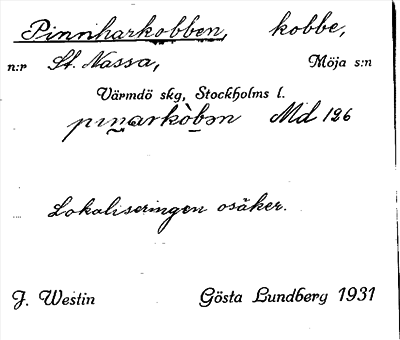 Pinnharkobben, kobbe,
n:r St. Nassa, Möja s:n
Värmdö skg, Stockholms l.
pınarkòbən Md 126
Lokaliseringen osäker.
J. Westin Gösta Lundberg 1931